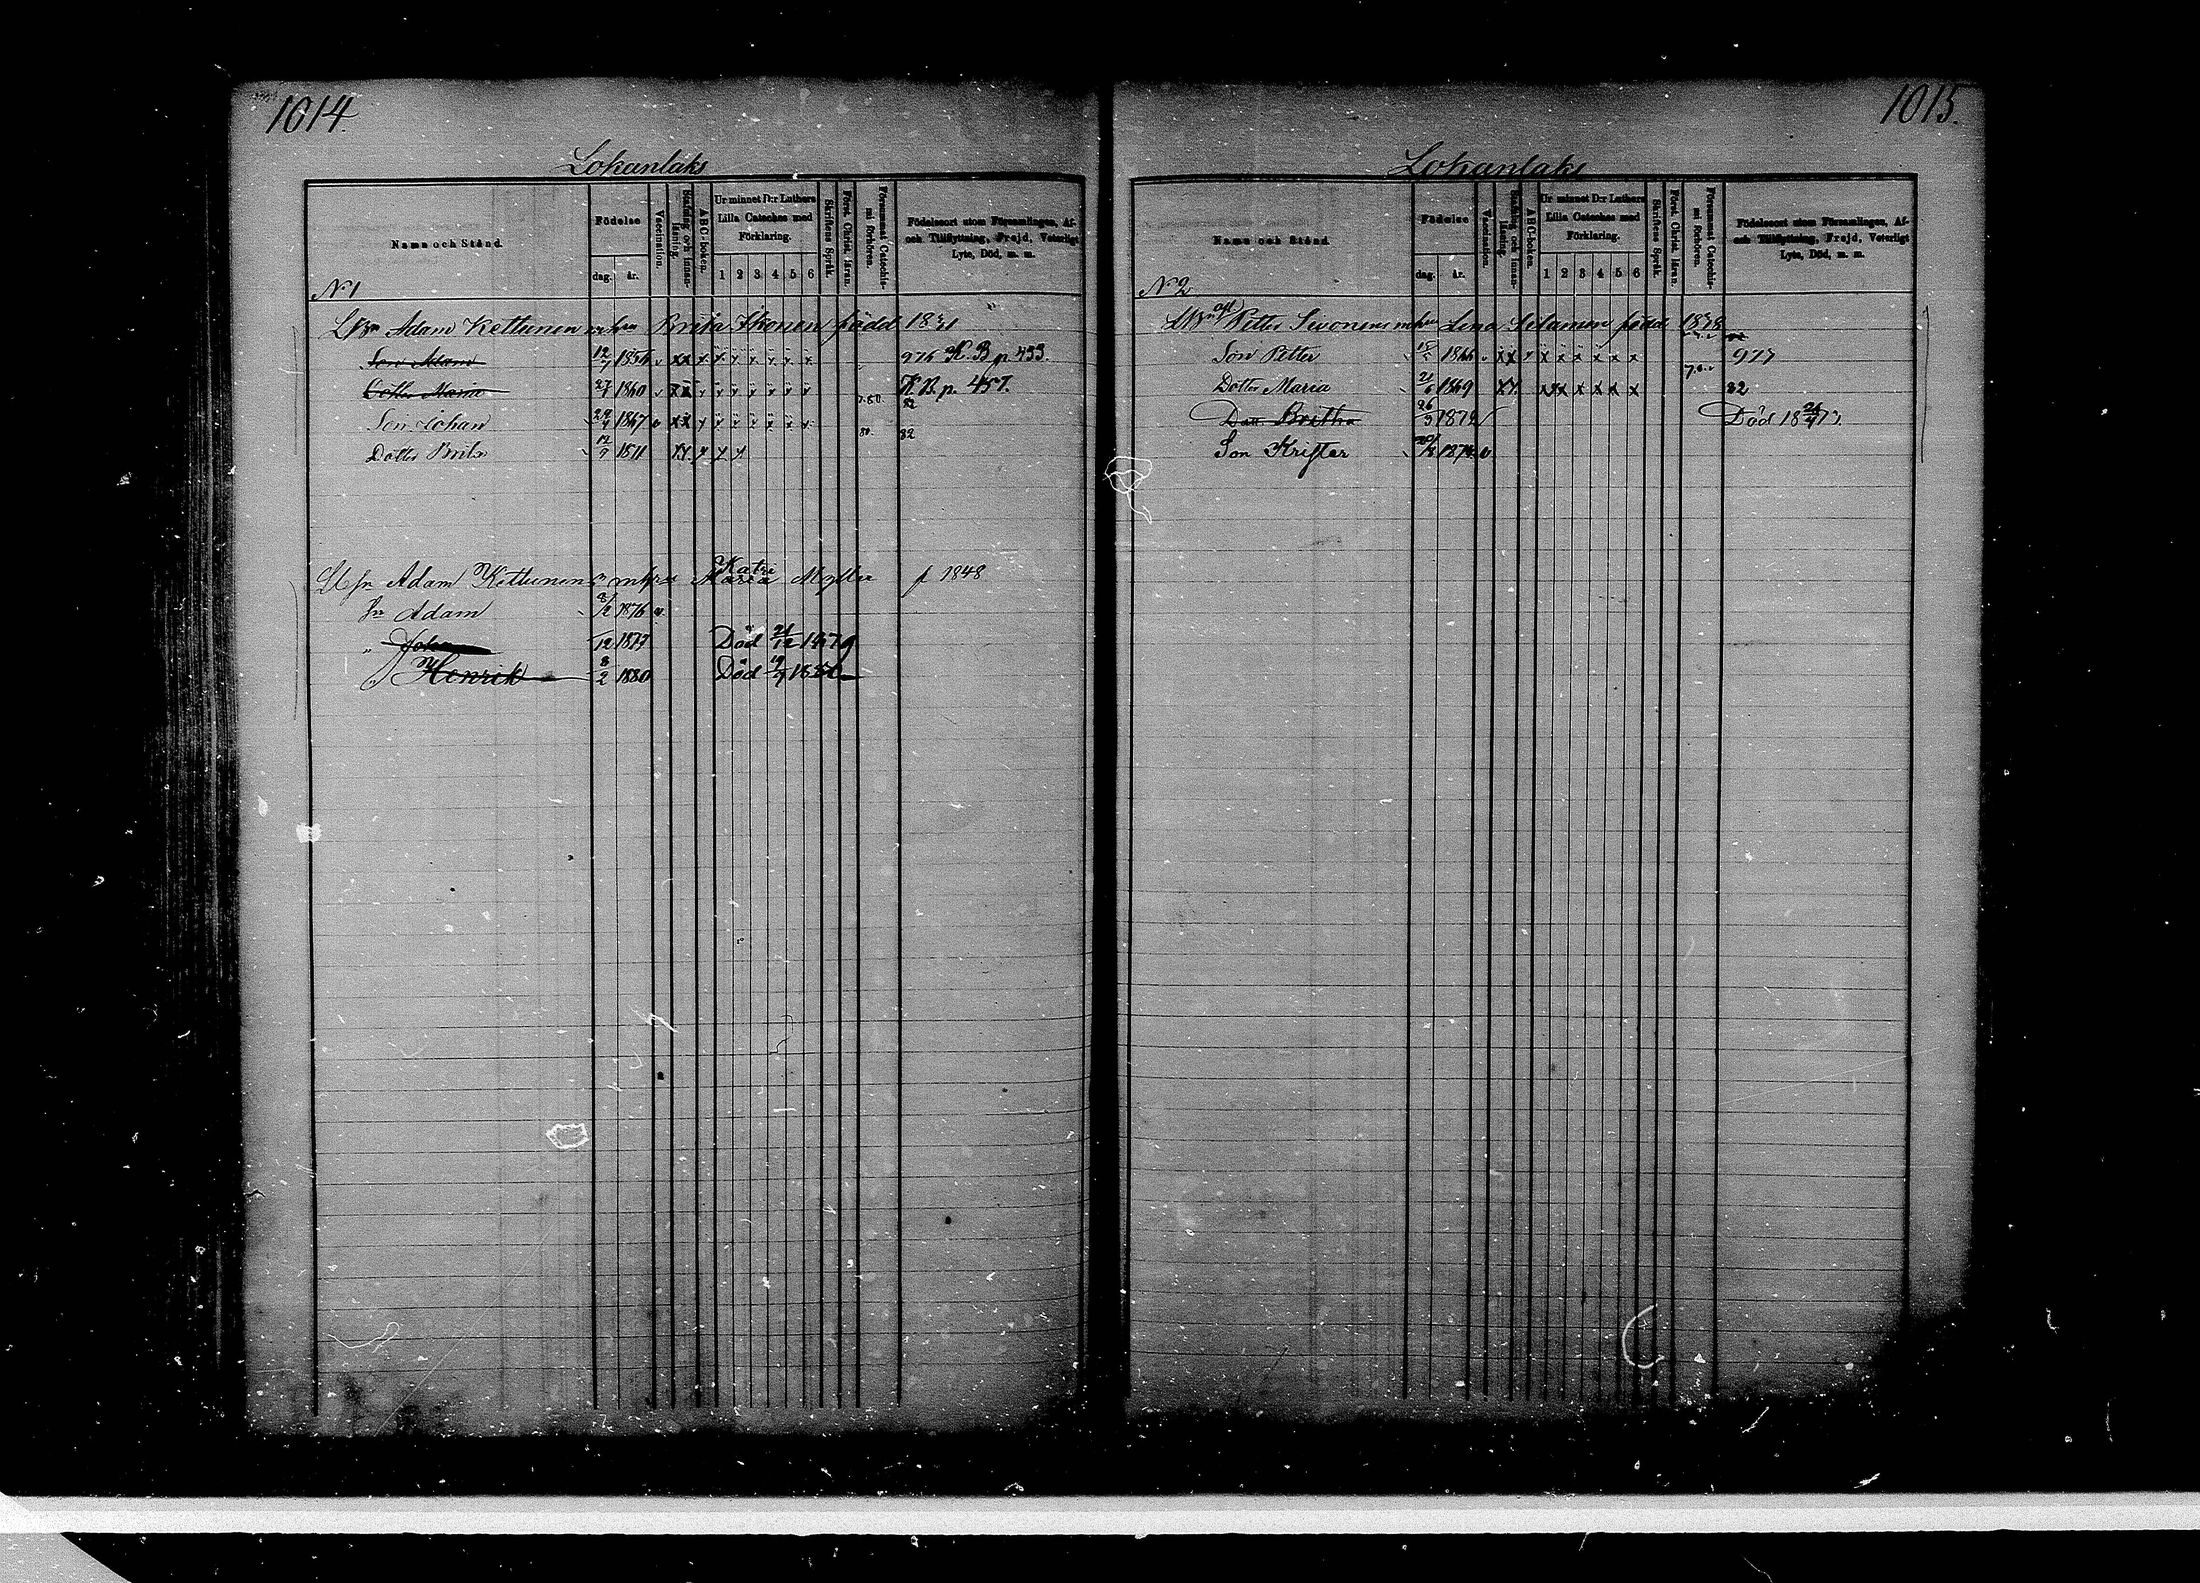 1014.
Lokanlaks
Namn och Stånd.
Födelse
dag. år.
Vaccination.
Stafning och Innanläsning.
ABC-boken.
Ur minnet D:r Luthers
Lilla Cateches med
Förklaring.
1 2 3 4 5 6
Skriftens Språk.
Först. Christ. läran.
Försummat Catechismi förhören.
Födelseort utom Församlingen, Af-
och Tillflyttning, Frejd, Veterligt
Lyte, Död, m. m.
N 1
Adam Kettunen Brita Ikonen född 1831
Son Adam 1856 v xx x x x x x x x 976 K. B p. 453.
Dotter Maria 27 1860 v xx x x x x x x x K B. p. 457.
Son Johan 29/4 1867 v xx x x x x x x x 82
Dotter Brita 12 xx x x x 82
Adam Kettunens Katri Maria f 1848
Adam 8/12 1876 v
" Johan /12 1877 Död 21/12 1879
" Henrik 8/2 1880 Död
1015.
Lokanlaks
Namn och Stånd.
Födelse
dag. år.
Vaccination.
Stafning och Innanläsning.
ABC-boken.
Ur minnet D:r Luthers
Lilla Cateches med
Förklaring.
1 2 3 4 5 6
Skriftens Språk.
Först. Christ. läran.
Försummat Catechismi förhören.
Födelseort utom Församlingen, Af-
och Tillflyttning, Frejd, Veterligt
Lyte, Död, m. m.
N 2
Petter Sivonens Lena född
Son Petter 1866 v xx x x x x x x x 977
Dotter Maria 21 1869 xx x x x x x x 82
Dott Britha 26/9 1872 Död
Son Krister 1874 v